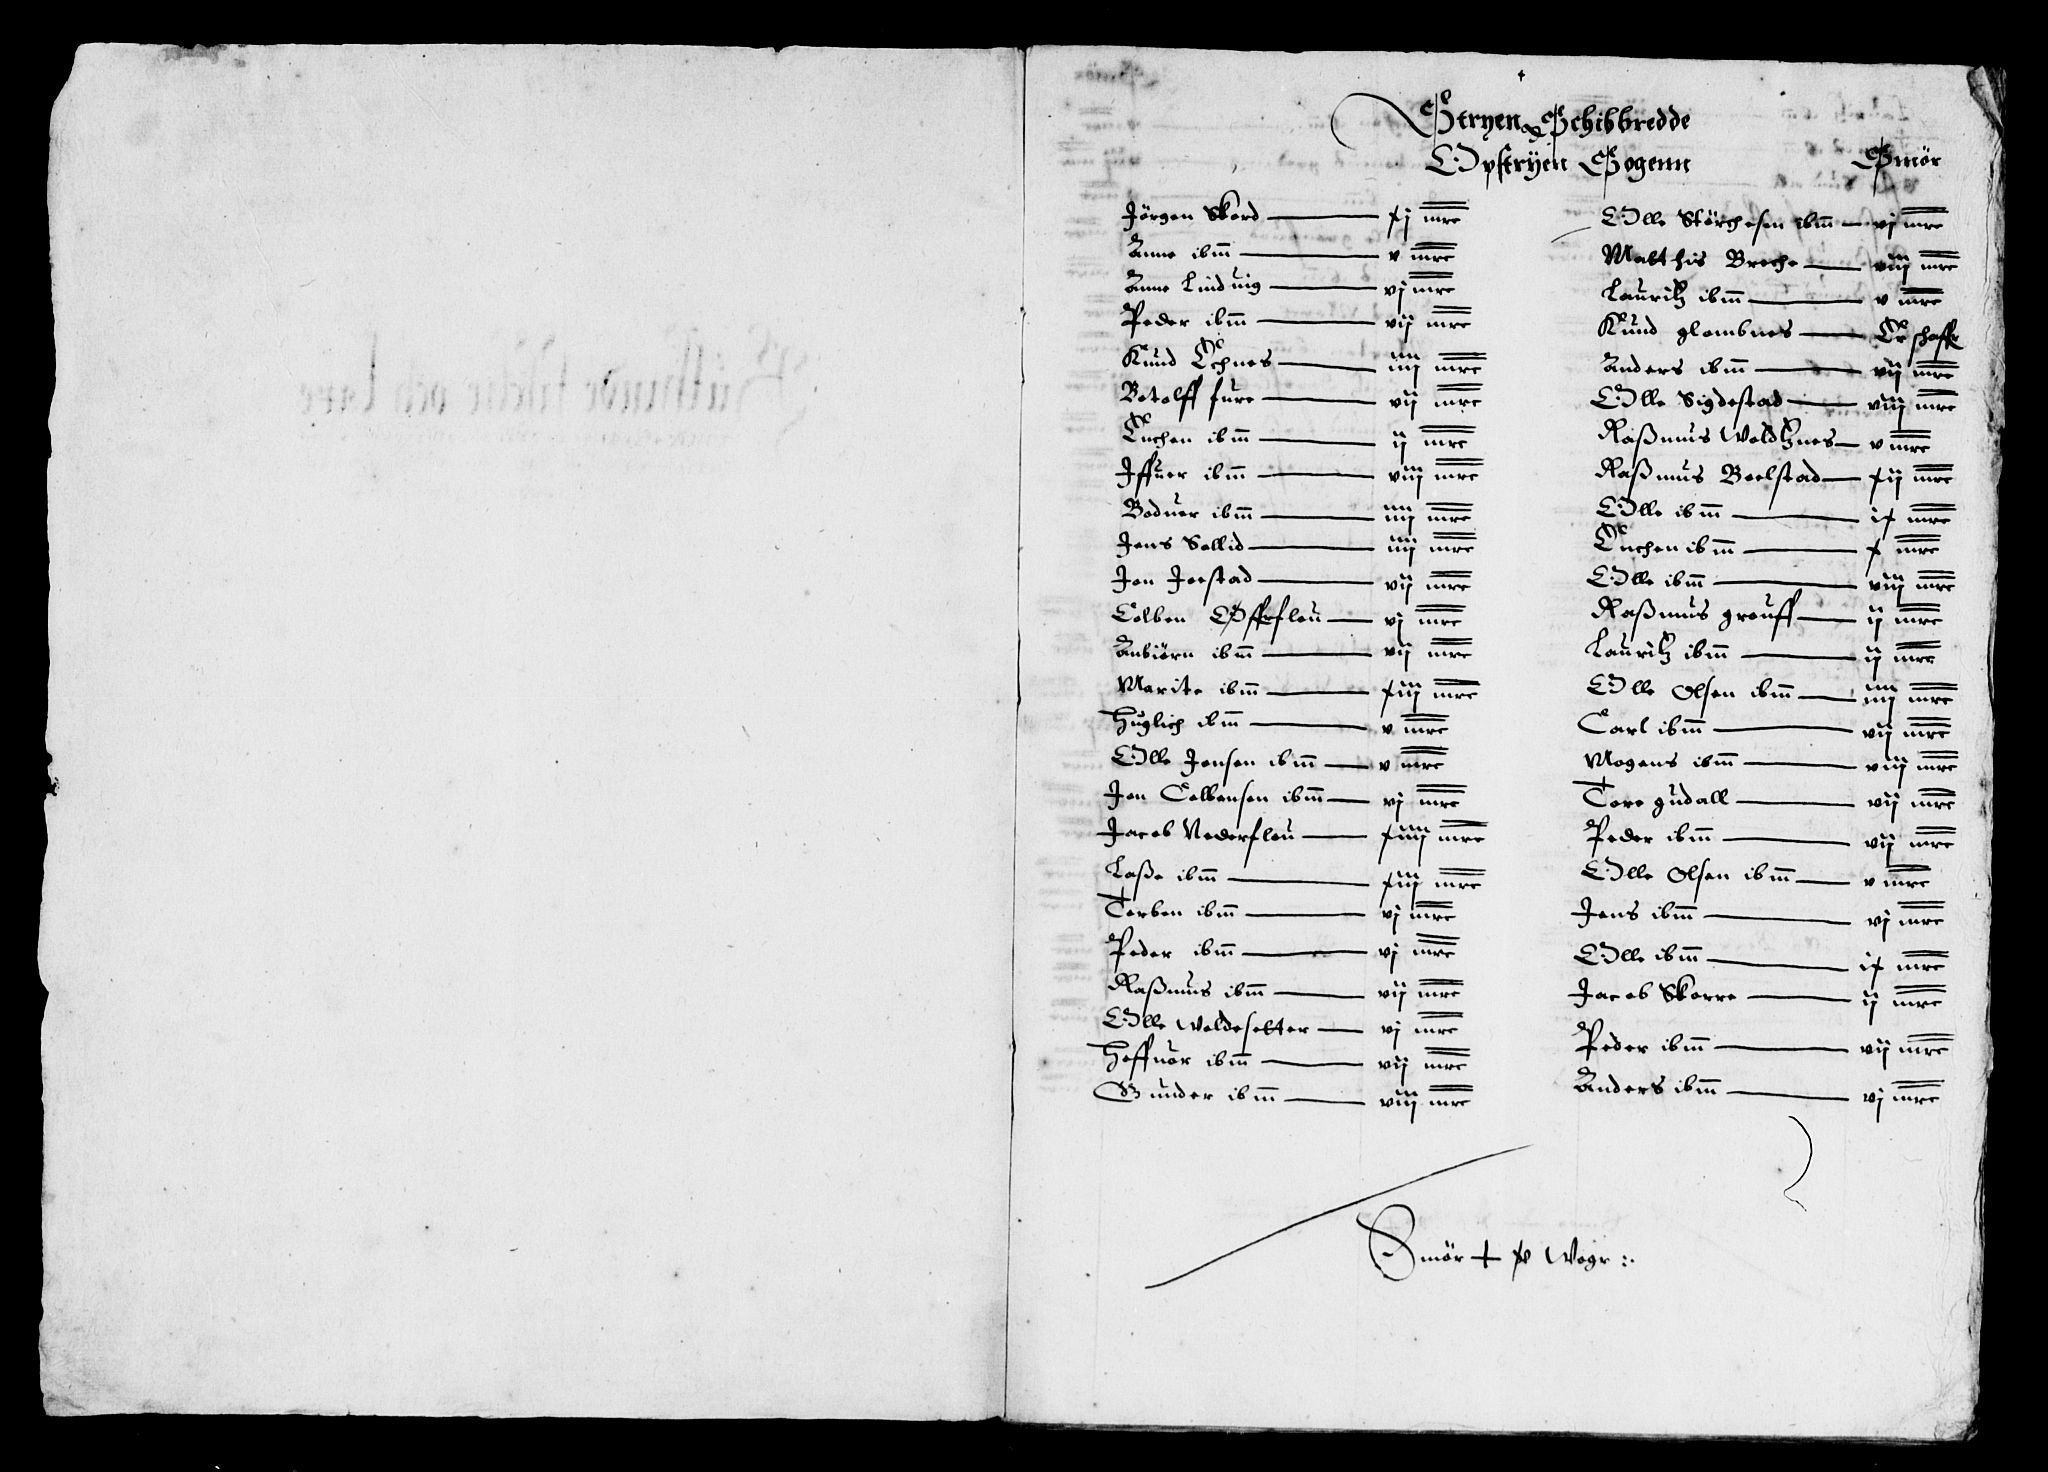 Stryen Schibbredde
Opstryen Sogenn Smör
Jörgen Skord xj mrc
Anne ibm v mrc
Anne Linduig vj mrc
Peder ibm vij mrc
Knud mrc
Botolff fure vij mrc
ibm ij mrc
Iffuer ibm viij mrc
Boduer ibm iiij mrc
Jens Sollid iiij mrc
Jon Jorstad vij mrc
Colben Offrfleu vj mrc
Anbiörn ibm vij mrc
Marite ibm xiij mrc
Huglich ibm v mrc
Olle Jensen ibm v mrc
Jon Colbensen ibm vj mrc
Jacob Nederfleu xiiij mrc
Laße ibm xiij mrc
Torben ibm vj mrc
Peder ibm vj mrc
Raßmus ibm vij mrc
Olle Woldesetter vj mrc
Heffuor ibm vij mrc
Gunder ibm viij mrc
Olle Störchesen ibm vj mrc
Matthis Breche viij mrc
Lauritz ibm v mrc
Knud glombnes
Anders ibm vij mrc
Olle Sigdestad viij mrc
Raßmus Woldtznes v mrc
Raßmus Boelstad xij mrc
Olle ibm ix mrc
ibm x mrc
Olle ibm viij mrc
Raßmus grouff ij mrc
Lauritz ibm ij mrc
Olle Olsen ibm iiij mrc
Carl ibm vij mrc
Mogens ibm viij mrc
Tore gudall vij mrc
Peder ibm vij mrc
Olle Olsen ibm v mrc
Jens ibm vj mrc
Olle ibm ix mrc
Jacob Skorre ij mrc
Peder ibm vij mrc
Anders ibm vj mrc
Smör Wogr